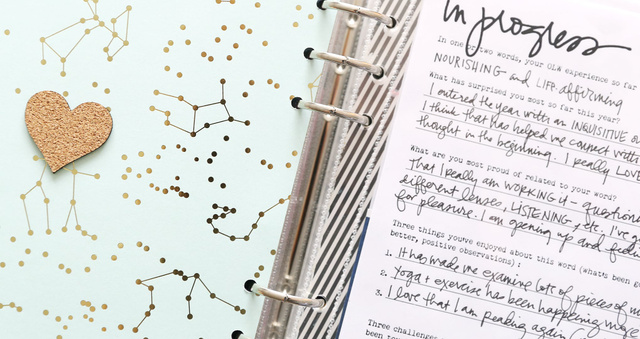 in progress
In one or two words, your OLW experience so far
NOURISHING and LIFE-affirming
What has surprised you most so far this year?
I entered the year with an INQUISITIVE
I think that has helped me connect with
thought in the beginning. I really LOVE
What are you most proud of related to your word?
That I really am WORKING it - question
different lenses, LISTENING etc. I've
for pleasure. I am opening up and
Three things you've enjoyed about this word (what's been
better, positive observations):
1. It has made me examine lots of pieces of
2. Yoga + exercise has been happening more
3. I love that I am reading again
Three challenges
been